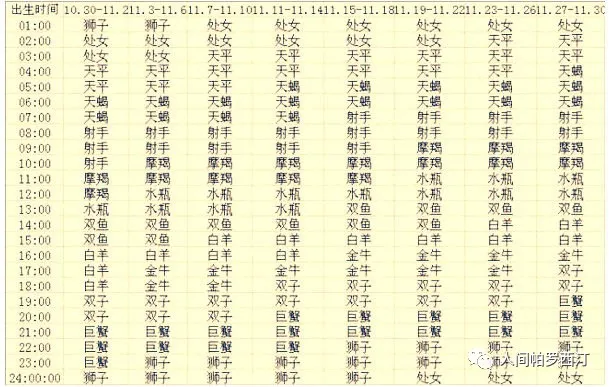 出生时间 10.30-11.2 11.3-11.6 11.7-11.10 11.11-11.14 11.15-11.18 11.19-11.22 11.23-11.26 11.27-11.30
01:00 狮子 狮子 处女 处女 处女 处女 处女 处女
02:00 处女 处女 处女 处女 处女 处女 天平 天平
03:00 处女 处女 天平 天平 天平 天平 天平 天平
04:00 天平 天平 天平 天平 天平 天平 天平 天蝎
05:00 天平 天平 天平 天蝎 天蝎 天蝎 天蝎 天蝎
06:00 天蝎 天蝎 天蝎 天蝎 天蝎 天蝎 天蝎 天蝎
07:00 天蝎 天蝎 天蝎 天蝎 射手 射手 射手 射手
08:00 射手 射手 射手 射手 射手 射手 射手 射手
09:00 射手 射手 射手 射手 射手 摩羯 摩羯 摩羯
10:00 射手 摩羯 摩羯 摩羯 摩羯 摩羯 摩羯 摩羯
11:00 摩羯 摩羯 摩羯 摩羯 摩羯 水瓶 水瓶 水瓶
12:00 摩羯 水瓶 水瓶 水瓶 水瓶 水瓶 水瓶 水瓶
13:00 水瓶 水瓶 水瓶 水瓶 双鱼 双鱼 双鱼 双鱼
14:00 双鱼 双鱼 双鱼 双鱼 双鱼 双鱼 白羊 白羊
15:00 双鱼 双鱼 白羊 白羊 白羊 白羊 白羊 白羊
16:00 白羊 白羊 白羊 白羊 金牛 金牛 金牛 金牛
17:00 白羊 金牛 金牛 金牛 金牛 金牛 金牛 双子
18:00 金牛 金牛 金牛 双子 双子 双子 双子 双子
19:00 双子 双子 双子 双子 双子 双子 双子 巨蟹
20:00 双子 双子 双子 巨蟹 巨蟹 巨蟹 巨蟹 巨蟹
21:00 巨蟹 巨蟹 巨蟹 巨蟹 巨蟹 巨蟹 巨蟹 巨蟹
22:00 巨蟹 巨蟹 巨蟹 巨蟹 狮子 狮子 狮子 狮子
23:00 巨蟹 狮子 狮子 狮子 狮子 狮子
24:00:00 狮子 狮子 狮子 狮子 处女 处女 处女 处女
人间帕罗西汀